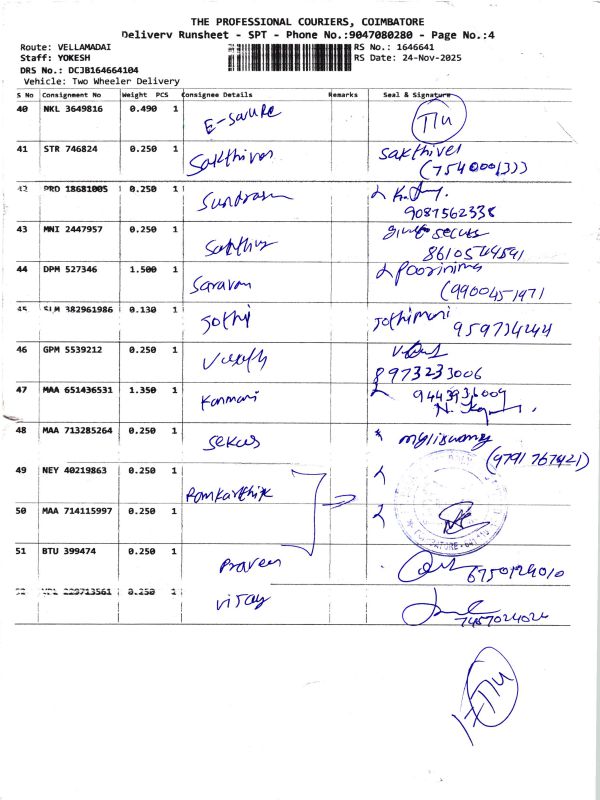 THE PROFESSIONAL COURIERS, COIMBATORE
Delivery Runsheet - SPT - Phone No.:9047080280 - Page No.:4
Route: VELLAMADAI RS No.: 1646641
Staff: YOKESH RS Date: 24-Nov-2025
DRS No.: DCJB164664104
Vehicle: Two Wheeler Delivery
S No Consignment No Weight PCS Consignee Details Remarks Seal & Signature
40 NKL 3649816 0.490 1 E-
41 STR 746824 0.250 1 Sakthivel Sakthivel
(7540001333)
42 PRD 18681005 0.250 1 Sundram
9087562338
43 MNI 2447957 0.250 1 Sakthi
8610544591
44 DPM 527346 1.500 1 Saravan Poorinima
(9900451971
45 SLM 382961986 0.130 1 Jothi Jothimani
959734244
46 GPM 5539212 0.250 1
8973233006
47 MAA 651436531 1.350 1 Kanmani 9443936009
48 MAA 713285264 0.250 1 Sekar myliswamy
(9791767421)
49 NEY 40219863 0.250 1
Ramkarthik
50 MAA 714115997 0.250 1
51 BTU 399474 0.250 1 Praveen 6750124010
52 VPL 229713561 0.250 1 Vijay
7457024024